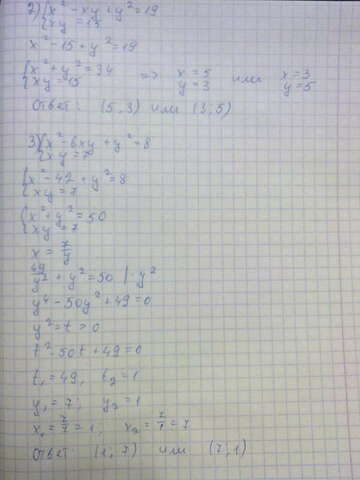 2) { x² - xy + y² = 19
{ xy = 15
x² - 15 + y² = 19
{ x² + y² = 34 => x = 5 или x = 3
{ xy = 15 y = 3 y = 5
Ответ: (5,3) или (3,5)
3) { x² - 6xy + y² = 8
{ xy = 7
{ x² - 42 + y² = 8
{ xy = 7
{ x² + y² = 50
{ xy = 7
x = 7/y
49/y² + y² = 50 | · y²
y⁴ - 50y² + 49 = 0
y² = t > 0
t² - 50t + 49 = 0
t₁ = 49, t₂ = 1
y₁ = 7; y₂ = 1
x₁ = 7/7 = 1; x₂ = 7/1 = 7
Ответ: (1,7) или (7,1)